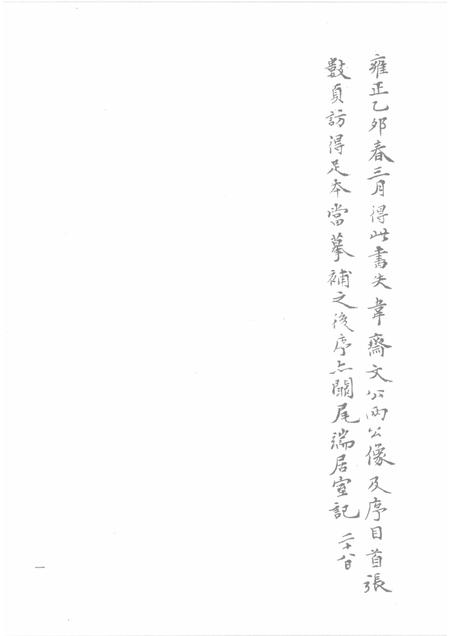 雍正乙夘春三月得此書失韋齋文公兩公像及序目首張
數頁訪得足本當摹補之後序亦闕尾端居室記 二十八日
一